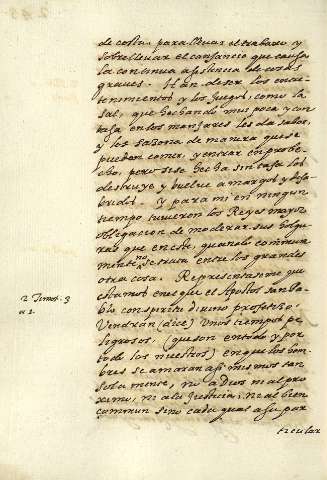 de costa, para llevar el trabaxo, y
sobrellevar el cansancio que causa
la continua asistencia de cosas
graves. Han de ser los entre-
tenimientos y los juegos, como la
sal, que hechando muy poca y con
tasa en los manjares les da sabor,
y les sazona de manera que se
pueden comer, y entrar en probe-
cho, pero si se hecha sin tasa los
destruye y buelve amargos y desa-
bridos. Y para mi en ningun
tiempo tuvieron los Reyes mayor
obligacion de moderar sus holgu-
ras que en este, quando comun-
mente no se trata entre los grandes
otra cosa. Representaseme que
estamos en el que el Apostol san Pa-
blo con spiritu divino profetiço.
Vendran (dice) unos tiempos pe-
ligrosos. (que son en todo y por
todo los nuestros) en que los hom-
bres se amaran asi mismos tan
solamente, no a Dios ni al pro-
ximo, ni a la Justicia, ni al bien
comun sino cada qual a su par
ticular
2 Timot. 3
a 1.